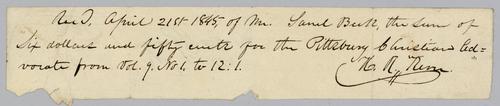 Rec'd, April 21st 1845 of Mr. Saml Beck, the sum of
Six dollars and fifty cents for the Pittsburg Christian Ad=
vocate from Vol. 9. No 1, to 12: 1.